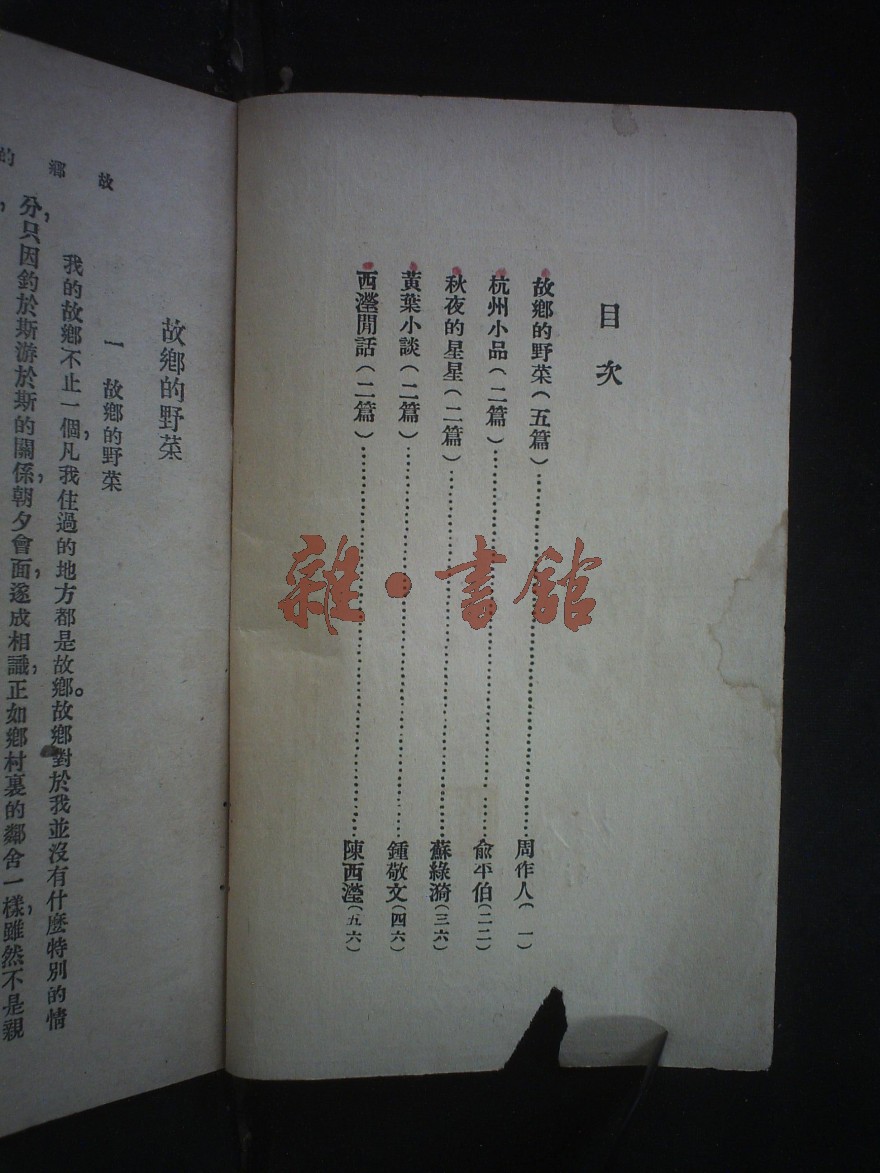 目次
故鄉的野菜(五篇)……周作人(一)
杭州小品(二篇)……俞平伯(二二)
秋夜的星星(二篇)……蘇綠漪(三六)
黃葉小談(二篇)……鍾敬文(四六)
西瀅閒話(二篇)……陳西瀅(五六)
雜·書館
故鄉的
故鄉的野菜
一 故鄉的野菜
我的故鄉不止一個,凡我住過的地方都是故鄉。故鄉對於我並沒有什麼特別的情
分,只因釣於斯游於斯的關係,朝夕會面,遂成相識,正如鄉村裏的鄰舍一樣,雖然不是親